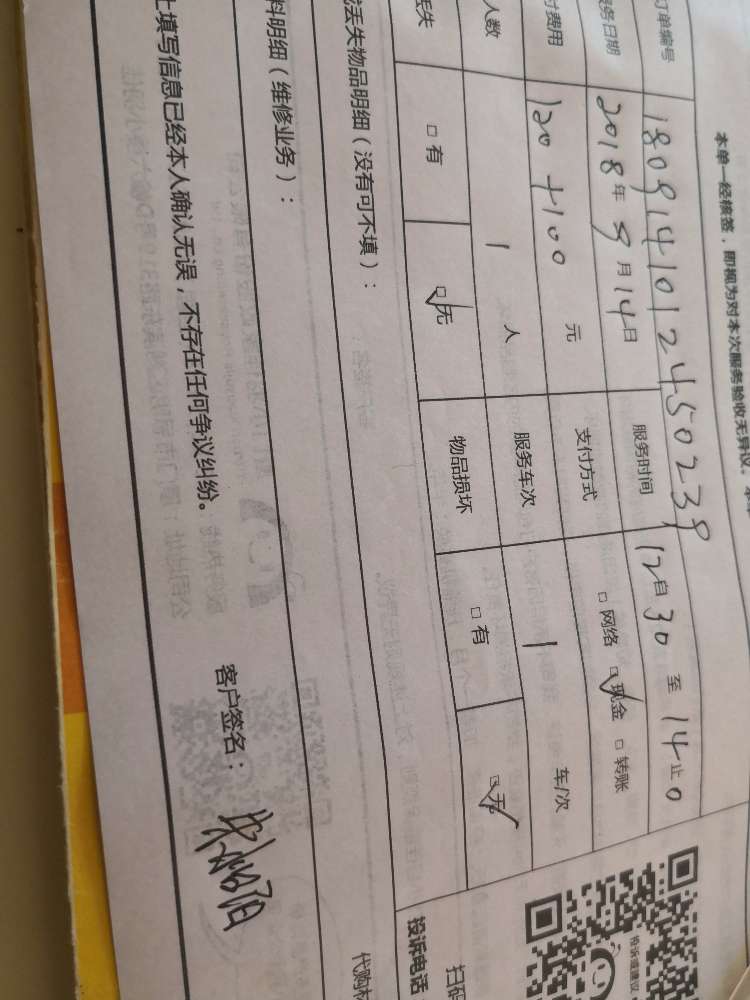 本单一经核签，即视为对本次服务验收无异议。
订单编号 1809141012450239
服务日期 2018年9月14日 服务时间 自12 30 至 14 0止
付费用 120+100 元 支付方式 □网络 ☑现金 □转账
人数 1 人 服务车次 1 车/次
丢失 □有 ☑无 物品损坏 □有 ☑无
丢失物品明细（没有可不填）：
料明细（维修业务）：
上填写信息已经本人确认无误，不存在任何争议纠纷。
客户签名：
投诉或建议
扫码
投诉电话
代购材